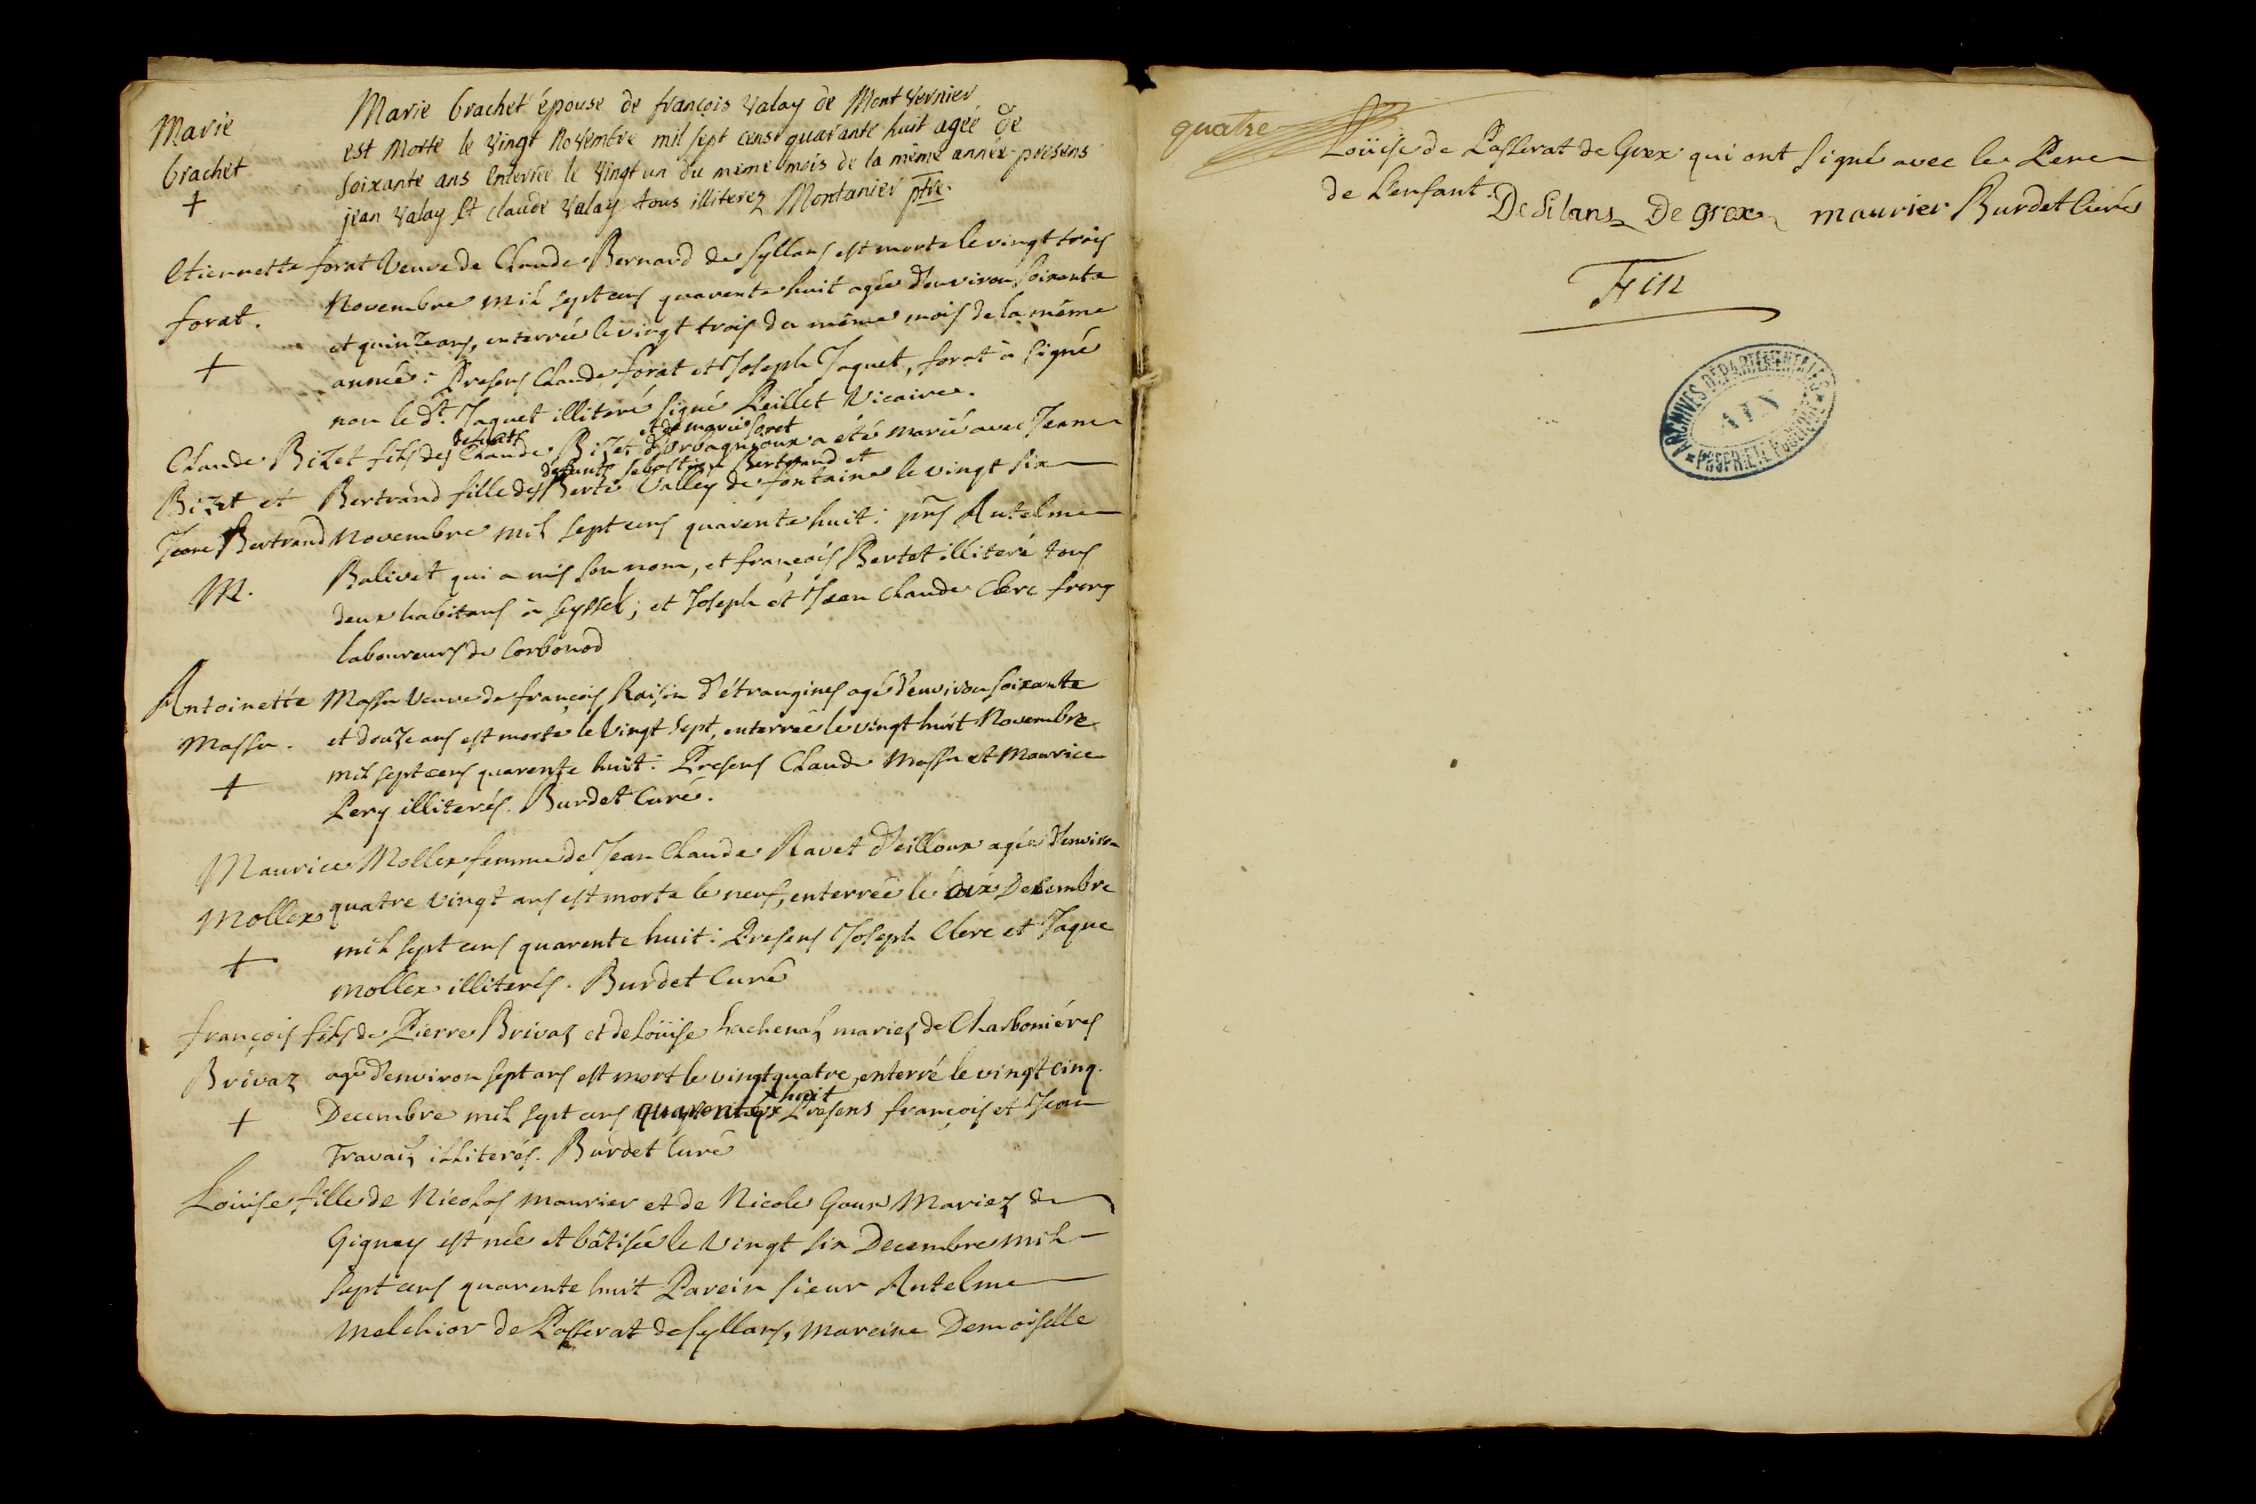 Marie brachet épouse de françois Valay de Mont Vernier
Marie
est Morte le Vingt Novembre mil sept cens quarante huit agée de
brachet
soixante ans Enterrée le Vingt un du meme mois de la même année presens
+
jean Valay Et claude Valay tous illiterez Montanier ptre.
Etiennette forat Veuve de Claude Bernard de Syllans est morte le vingt trois
forat.
Novembre mil sept cens quarente huit agée d'environ soixante
et quinze ans, enterrée le vingt trois du même mois de la même
+
année: Presens Claude forat et Joseph Jaquet, forat à signé
non le dt. Jaquet illiteré signé Peillet Vicaire.
et de marie foret
defunts
Claude Bizet fils des Claude Bizet d'Orbagnoux a été marié avec Jeanne
defunts sebastien Bertrand et
Bizet et Bertrand fille des Berte Valley de fontaine le vingt six
Jeane Bertrand Novembre mil sept cens quarente huit: pns Antelme
M.
Balivet qui a mis son nom, et françois Bertet illiteré tous
deux habitans à Seyssel; et Joseph et Jean Claude Clerc frerz
laboureurs de Corbonod
Antoinette Massu Veuve de françois Raisin d'étrangines agé d'environ soixante
Massu.
et douze ans est morte le Vingt sept, enterrée le vingt huit Novembre
+
mil sept cens quarente huit: Presens Claude Massu et Maurice
Pery illiterés. Burdet Curé.
Maurice Mollex femme de Jean Claude Ravet d'eilloux agée d'environ
Mollex quatre vingt ans est morte le neuf, enterrée le dix Decembre
+
mil sept cens quarente huit: Presens Joseph Clerc et Jaque
Mollex illiterés. Burdet Curé
françois fils de Pierre Brivaz et de Loüise Lachenaz mariez de Charboniéres
Brivaz
agé d'environ sept ans est mort le vingt quatre, enterré le vingt cinq.
huit
+
Decembre mil sept cens quarente Presens françois et Jean
Travaiz illiterés. Burdet Curé
Loüise fille de Nicolas Maurier et de Nicole Goux Mariez de
Gignez est née et bâtisée le Vingt six Decembre mil
sept cens quarente huit Parein sieur Antelme
Melchior de Passerat de Syllans, Mareine Demoiselle
quatre
Loüise de Passerat de Grex qui ont signé avec le Pere
de L'enfant. De Silans De grex maurier Burdet Curé
Fin
ARCHIVES DÉPARTEMENTALES
AIN
PROPRIÉTÉ PUBLIQUE